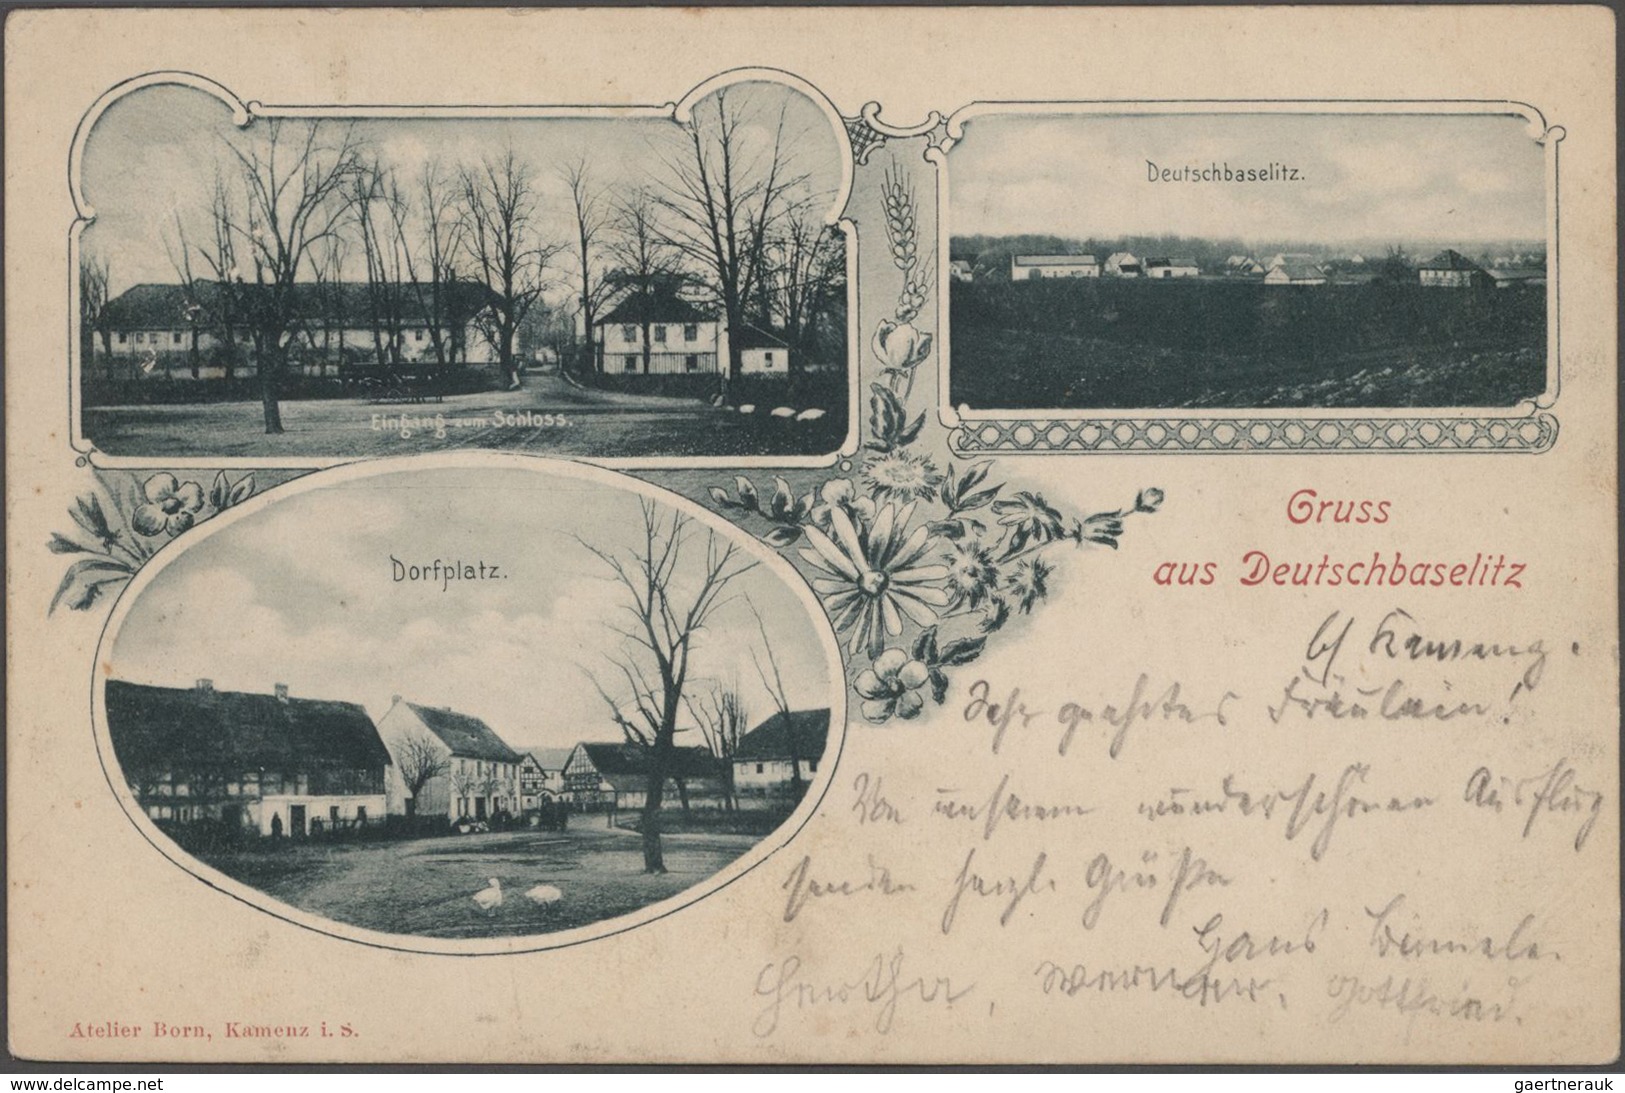 Deutschbaselitz.
Eingang zum Schloss.
Dorfplatz.
Gruss
aus Deutschbaselitz
b/ Kamenz.
Sehr geehrtes Fräulein!
Von unserem wunderschönen Ausflug
senden herzl. Grüße
Hans
Hertha, Werner, Gottfried.
Atelier Born, Kamenz i. S.
www.delcampe.net
gaertnerauk